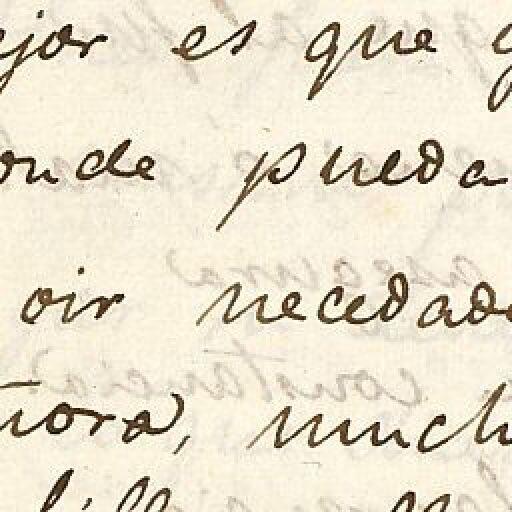 ejor es que
onde pueda
oir necedade
ñora, much